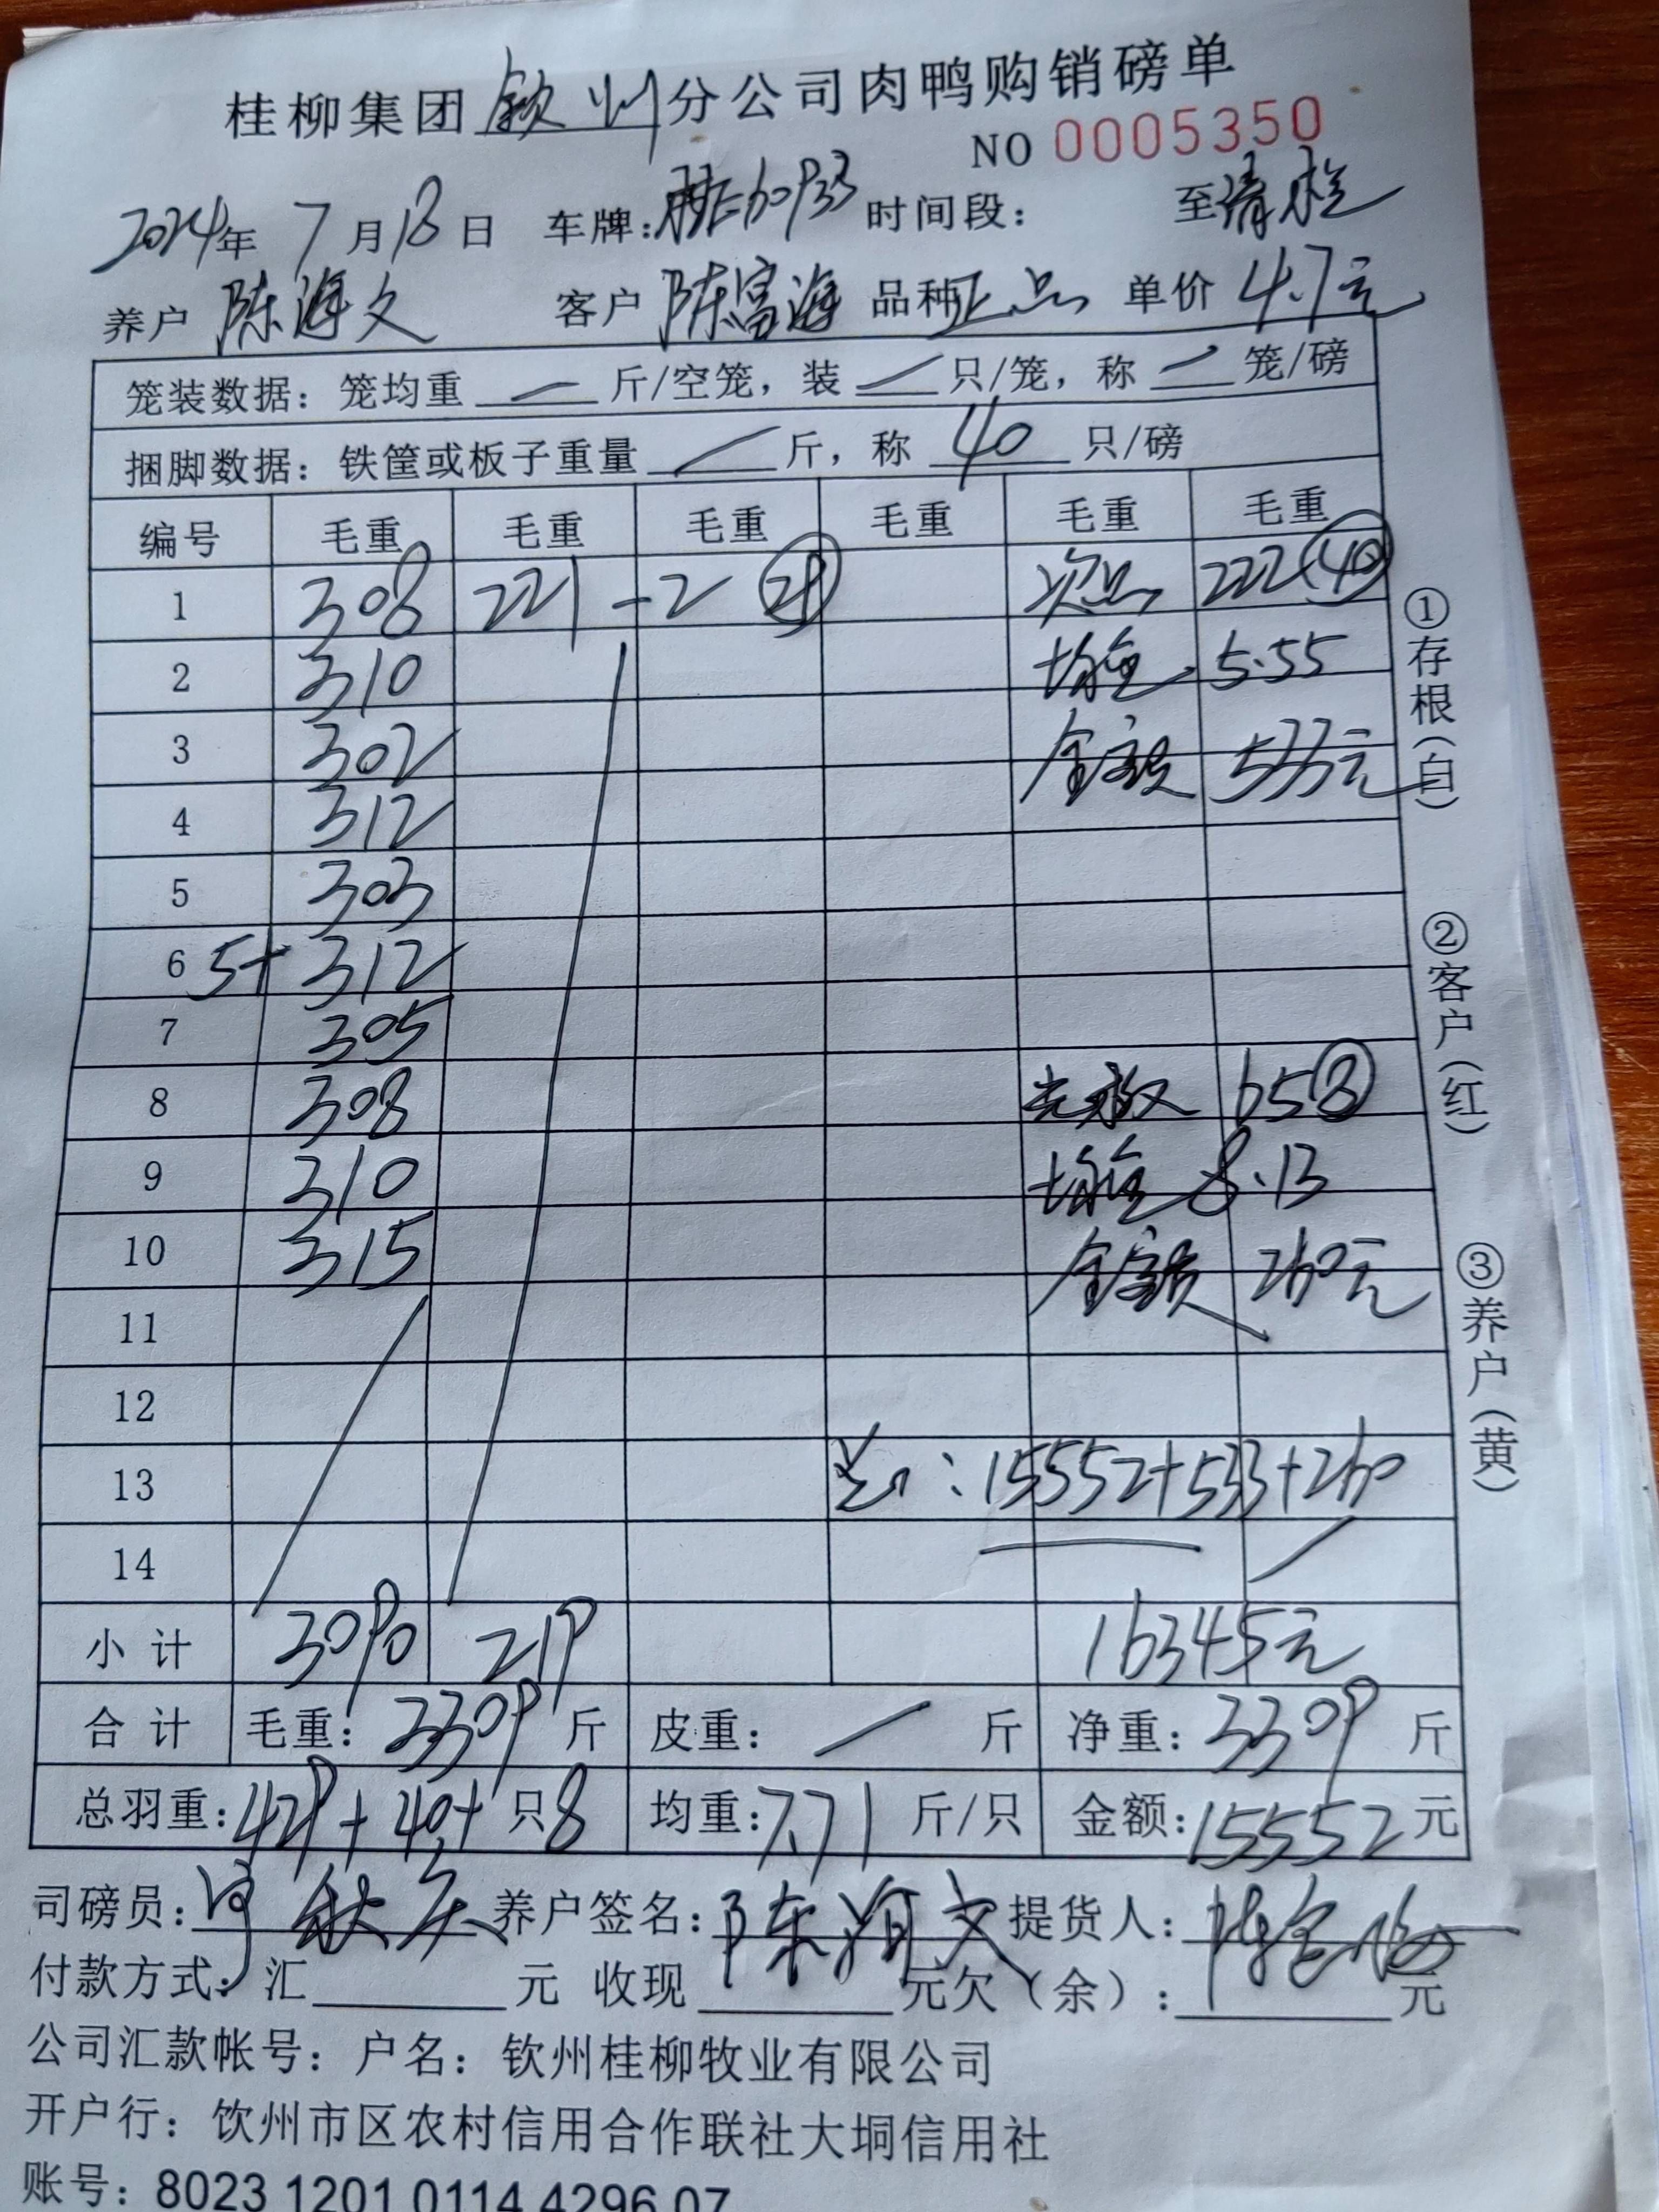 桂柳集团钦州分公司肉鸭购销磅单
NO 0005350
2024年 7 月 18 日 车牌: 时间段: 至清栓
养户 陈海文 客户 陈富海 品种 正品 单价 4.7元
笼装数据: 笼均重 — 斤/空笼, 装 — 只/笼, 称 — 笼/磅
捆脚数据: 铁筐或板子重量 — 斤, 称 40 只/磅
编号 毛重 毛重 毛重 毛重 毛重 毛重
1 308 221 -2 次品 222 40
2 310 均重 5.55
3 302 金额 533元
4 312
5 303
6 5+ 312
7 305
8 308 65 8
9 310 均重 8.13
10 315 金额 260元
11
12
13 15552+533+260
14
小计 3090 219 16345元
合计 毛重: 3309 斤 皮重: — 斤 净重: 3309 斤
总羽重: 429+40+ 只 8 均重: 7.71 斤/只 金额: 15552 元
司磅员: 养户签名: 陈海文 提货人:
付款方式: 汇 元 收现 元欠(余): 元
公司汇款帐号: 户名: 钦州桂柳牧业有限公司
开户行: 钦州市区农村信用合作联社大垌信用社
账号: 8023 1201 0114 4296 07
①存根(白)
②客户(红)
③养户(黄)